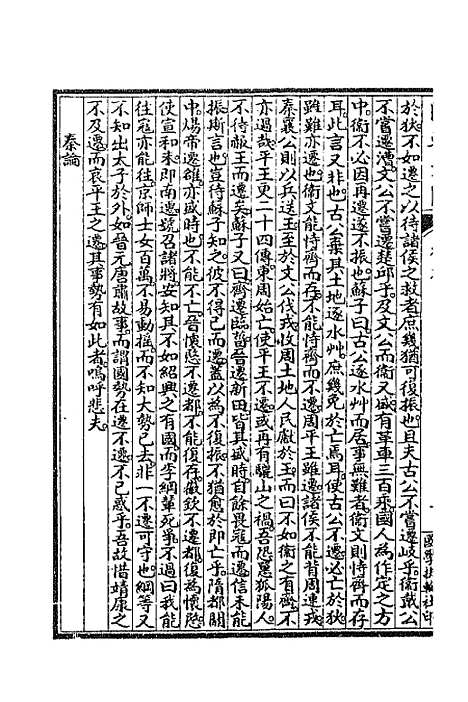 於狄不如遷之以待諸侯之救者庶幾猶可復振也且夫古公不嘗遷岐乎衛戴公
不嘗遷漕文公不嘗遷楚邱乎及文公而衛又盛有革車三百乘國人為作定之方
中衛不必因再遷遂不振也蘇子曰古公逐水艸而居事無難者衛文則恃齊而存
耳此言又非也古公棄其土地逐水艸庶幾免於亡焉耳使古公不遷必亡於狄
雖難亦遷也衛文能恃齊而存不能恃齊而不遷周平王雖遷諸侯不能背周連戎
秦襄公則以兵送王至於文公伐戎收周土地人民獻於王而曰不如衛之有齊不
亦過哉平王更二十四傳東周始亡使平王不遷或再有驪山之禍吾恐憲狄陽人
不待赧王而遷矣蘇子又曰齊遷臨菑晉遷新田皆其盛時自餘畏寇而遷信未能
振斯言也豈待蘇子知之彼不得已而遷蓋以為不復振不猶愈於即亡乎隋都關
中煬帝遷雒亦盛時也不能不亡晉懷愍不遷都不能復存徽欽不遷都復為懷愍
使宣和末即南遷號召諸將安知其不如紹興之有國而李綱輩死爭不過曰我能
往寇亦能往京師士女百萬不易動搖而不知大勢已去非一不遷可守也綱等又
不知出太子於外如晉元唐肅故事而謂國勢在遷不遷不已惑乎吾故惜靖康之
不及遷而哀平王之遷其事勢有如此者嗚呼悲夫
秦論